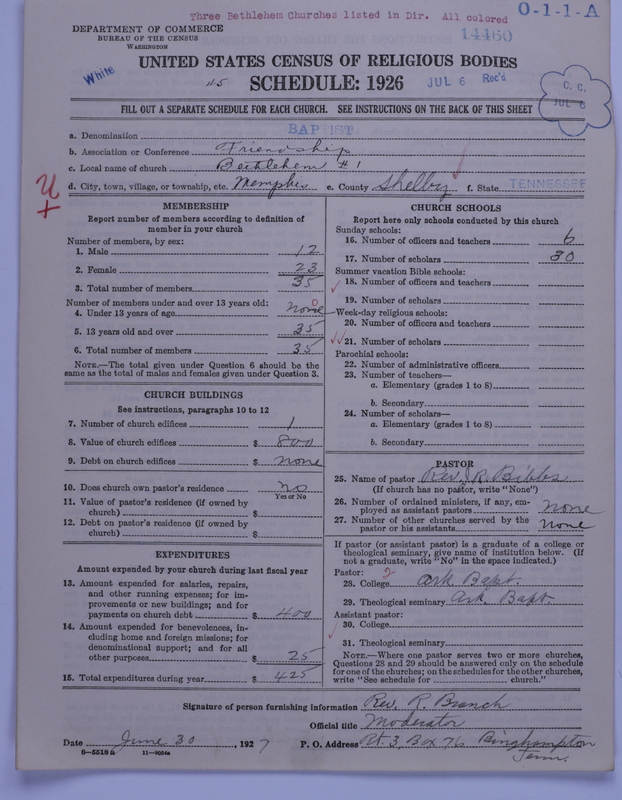 Three Bethlehem Churches listed in Dir. All colored
0-1-1-A
DEPARTMENT OF COMMERCE
BUREAU OF THE CENSUS
WASHINGTON
14460
UNITED STATES CENSUS OF RELIGIOUS BODIES
White
45
SCHEDULE: 1926
JUL 6 Rec'd
C. C.
JUL 6
FILL OUT A SEPARATE SCHEDULE FOR EACH CHURCH. SEE INSTRUCTIONS ON THE BACK OF THIS SHEET
a. Denomination BAPTIST
b. Association or Conference Friendship
c. Local name of church Bethlehem #1
d. City, town, village, or township, etc. Memphis e. County Shelby f. State TENNESSEE
MEMBERSHIP
Report number of members according to definition of
member in your church
Number of members, by sex:
1. Male 12
2. Female 23
3. Total number of members 35
Number of members under and over 13 years old:
4. Under 13 years of age none 0
5. 13 years old and over 35
6. Total number of members 35
NOTE.—The total given under Question 6 should be the
same as the total of males and females given under Question 3.
CHURCH BUILDINGS
See instructions, paragraphs 10 to 12
7. Number of church edifices 1
8. Value of church edifices $ 800
9. Debt on church edifices $ none
10. Does church own pastor's residence no
Yes or No
11. Value of pastor's residence (if owned by
church) $
12. Debt on pastor's residence (if owned by
church) $
EXPENDITURES
Amount expended by your church during last fiscal year
13. Amount expended for salaries, repairs,
and other running expenses; for im-
provements or new buildings; and for
payments on church debt $ 400
14. Amount expended for benevolences, in-
cluding home and foreign missions; for
denominational support; and for all
other purposes $ 25
15. Total expenditures during year $ 425
CHURCH SCHOOLS
Report here only schools conducted by this church
Sunday schools:
16. Number of officers and teachers 6
17. Number of scholars 30
Summer vacation Bible schools:
18. Number of officers and teachers
19. Number of scholars
Week-day religious schools:
20. Number of officers and teachers
21. Number of scholars
Parochial schools:
22. Number of administrative officers
23. Number of teachers—
a. Elementary (grades 1 to 8)
b. Secondary
24. Number of scholars—
a. Elementary (grades 1 to 8)
b. Secondary
PASTOR
25. Name of pastor Rev. J. R. Bibbs
(If church has no pastor, write "None")
26. Number of ordained ministers, if any, em-
ployed as assistant pastors none
27. Number of other churches served by the
pastor or his assistants none
If pastor (or assistant pastor) is a graduate of a college or
theological seminary, give name of institution below. (If
not a graduate, write "No" in the space indicated.)
Pastor:
2
28. College Ark Bapt.
29. Theological seminary Ark. Bapt.
Assistant pastor:
30. College
31. Theological seminary
NOTE.—Where one pastor serves two or more churches,
Questions 28 and 29 should be answered only on the schedule
for one of the churches; on the schedules for the other churches,
write "See schedule for church."
Signature of person furnishing information Rev. R. Branch
Official title Moderator
Date June 30, 1927 P. O. Address Rt. 3, Box 76 Binghampton
Tenn.
8—5518a 11—9084a